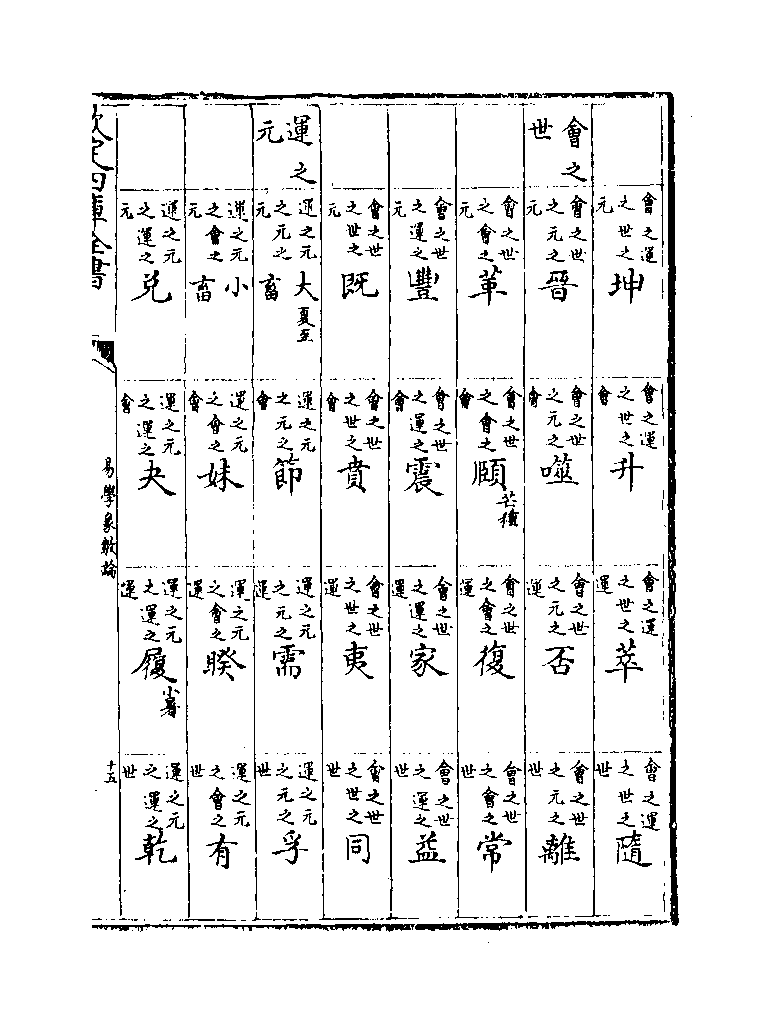 會之運之世之元 坤
會之運之世之會 升
會之運之世之運 萃
會之運之世之世 隨
會之世
會之世之元之元 晉
會之世之元之會 噬
會之世之元之運 否
會之世之元之世 離
會之世之會之元 革
會之世之會之會 頤 芒種
會之世之會之運 復
會之世之會之世 常
會之世之運之元 豐
會之世之運之會 震
會之世之運之運 家
會之世之運之世 益
會之世之世之元 既
會之世之世之會 賁
會之世之世之運 夷
會之世之世之世 同
運之元
運之元之元之元 大畜 夏至
運之元之元之會 節
運之元之元之運 需
運之元之元之世 孚
運之元之會之元 小畜
運之元之會之會 妹
運之元之會之運 睽
運之元之會之世 有
運之元之運之元 兑
運之元之運之會 夬
運之元之運之運 履 小暑
運之元之運之世 乾
欽定四庫全書
易學象數論
十五